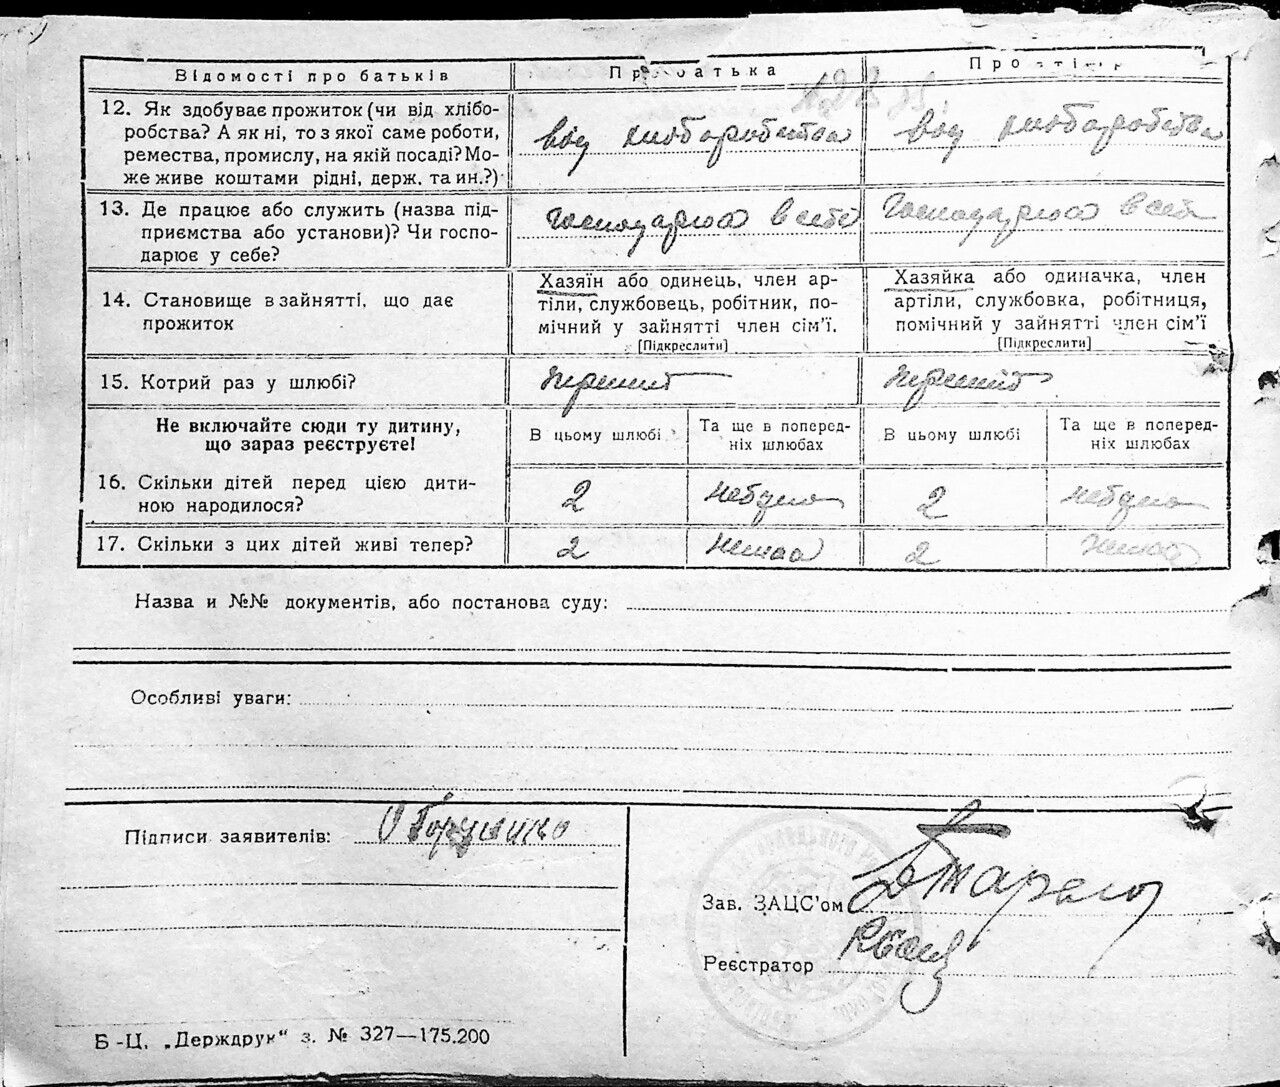 Відомості про батьків
Про батька
12. Як здобуває прожиток (чи від хлібо-
робства? А як ні, то з якої саме роботи,
ремества, промислу, на якій посаді? Мо-
же живе коштами рідні, держ. та ин.?)
від хлиборобства
від хлиборобства
13. Де працює або служить (назва під-
приємства або установи)? Чи госпо-
дарює у себе?
Господарюа в себе
Господарюа в себе
14. Становище в зайнятті, що дає
прожиток
Хазяїн або одинець, член ар-
тіли, службовець, робітник, по-
мічний у зайнятті член сім'ї.
[Підкреслити]
Хазяйка або одиначка, член
артіли, службовка, робітниця,
помічний у зайнятті член сім'ї
[Підкреслити]
15. Котрий раз у шлюбі?
перший
перший
Не включайте сюди ту дитину,
що зараз реєструєте!
В цьому шлюбі
Та ще в поперед-
ніх шлюбах
В цьому шлюбі
Та ще в поперед-
ніх шлюбах
16. Скільки дітей перед цією дити-
ною народилося?
2
небуло
2
небуло
17. Скільки з цих дітей живі тепер?
2
Немаа
2
Немаа
Назва и №№ документів, або постанова суду:
Особливі уваги:
Підписи заявителів:
Зав. ЗАЦС'ом
Реєстратор
Б-Ц. „Держдрук" з. № 327—175.200